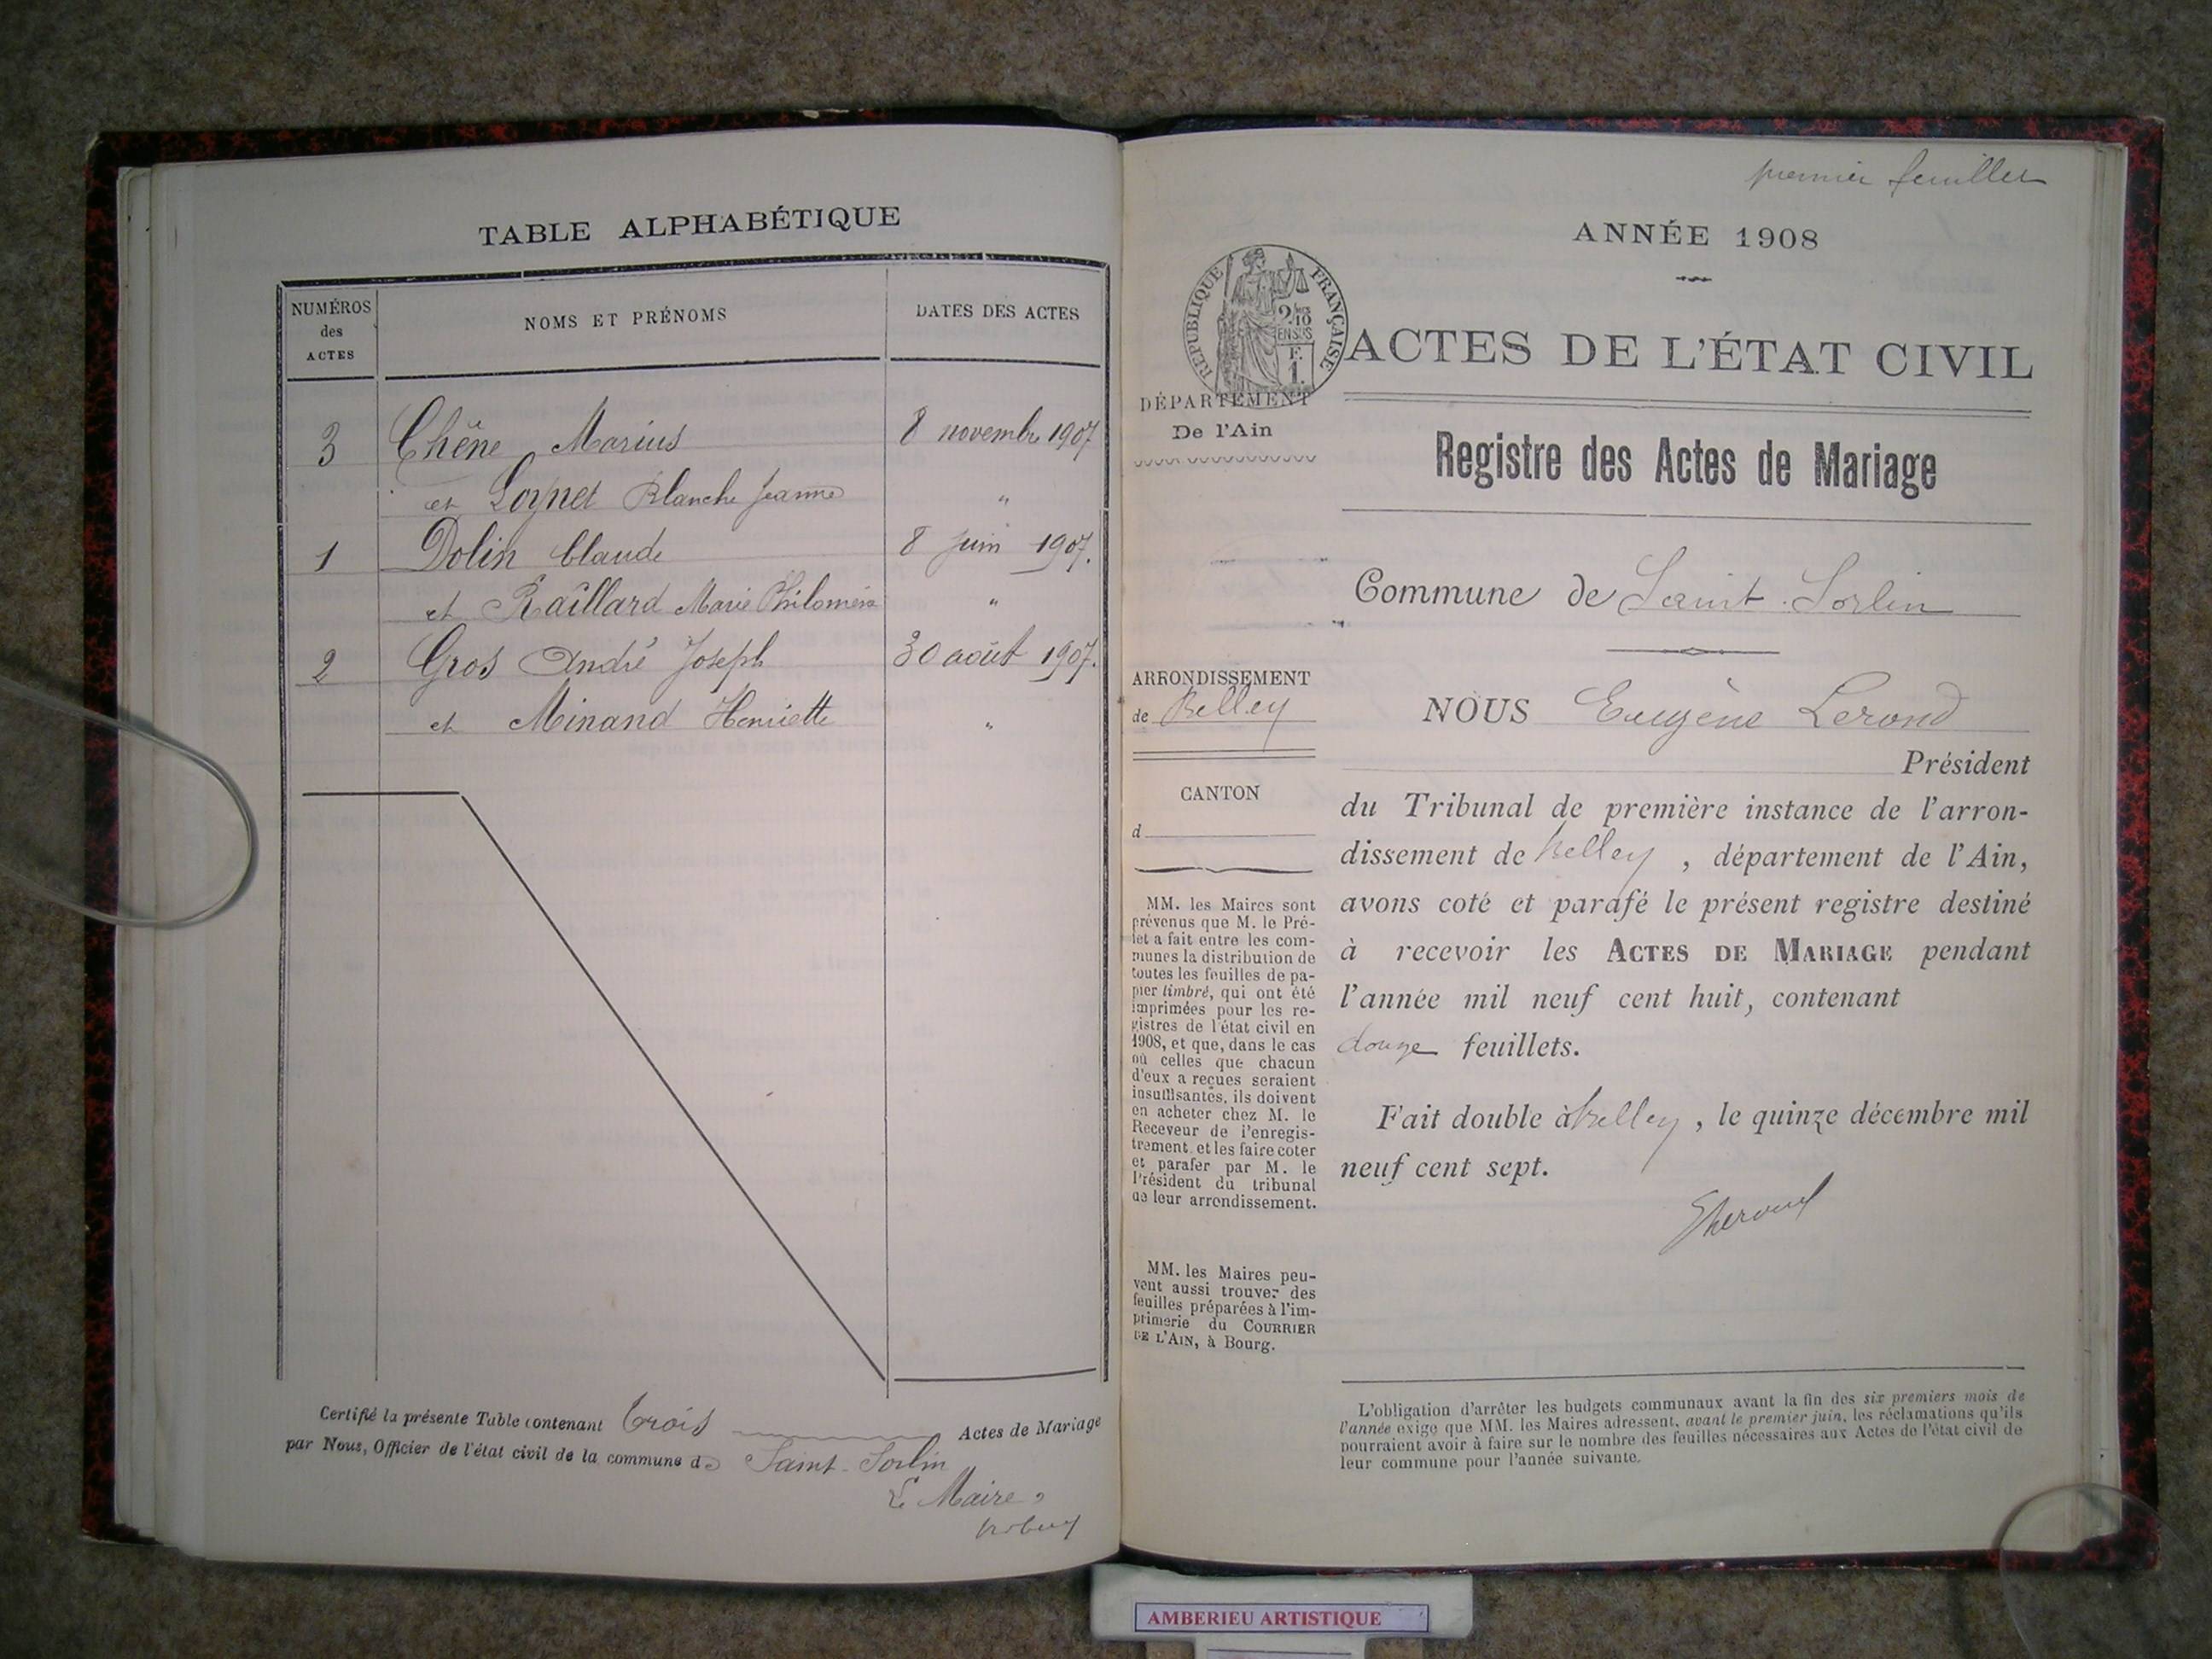 TABLE ALPHABÉTIQUE
NUMÉROS des ACTES
NOMS ET PRÉNOMS
DATES DES ACTES
3 Chêne Marius 8 novembre 1907
et Loynet Blanche Jeanne "
1 Dolin Claude 8 juin 1907.
et Raîllard Marie Philomène "
2 Gros André Joseph 30 août 1907.
et Minand Henriette "
Certifié la présente Table contenant trois Actes de Mariage
par Nous, Officier de l'état civil de la commune de Saint-Sorlin
Le Maire,
premier feuillet
ANNÉE 1908
RÉPUBLIQUE FRANÇAISE
2/10 EN SUS
F. 1.
ACTES DE L'ÉTAT CIVIL
DÉPARTEMENT
De l'Ain
Registre des Actes de Mariage
Commune de Saint-Sorlin
ARRONDISSEMENT
de Belley
CANTON
d
MM. les Maires sont
prévenus que M. le Pré-
fet a fait entre les com-
munes la distribution de
toutes les feuilles de pa-
pier timbré, qui ont été
imprimées pour les re-
gistres de l'état civil en
1908, et que, dans le cas
où celles que chacun
d'eux a reçues seraient
insuffisantes, ils doivent
en acheter chez M. le
Receveur de l'enregis-
trement, et les faire coter
et parafer par M. le
Président du tribunal
de leur arrondissement.
MM. les Maires peu-
vent aussi trouver des
feuilles préparées à l'im-
primerie du COURRIER
DE L'AIN, à Bourg.
NOUS Eugène Lerond
Président
du Tribunal de première instance de l'arron-
dissement de Belley, département de l'Ain,
avons coté et parafé le présent registre destiné
à recevoir les ACTES DE MARIAGE pendant
l'année mil neuf cent huit, contenant
douze feuillets.
Fait double à Belley, le quinze décembre mil
neuf cent sept.
L'obligation d'arrêter les budgets communaux avant la fin des six premiers mois de
l'année exige que MM. les Maires adressent, avant le premier juin, les réclamations qu'ils
pourraient avoir à faire sur le nombre des feuilles nécessaires aux Actes de l'état civil de
leur commune pour l'année suivante.
AMBERIEU ARTISTIQUE